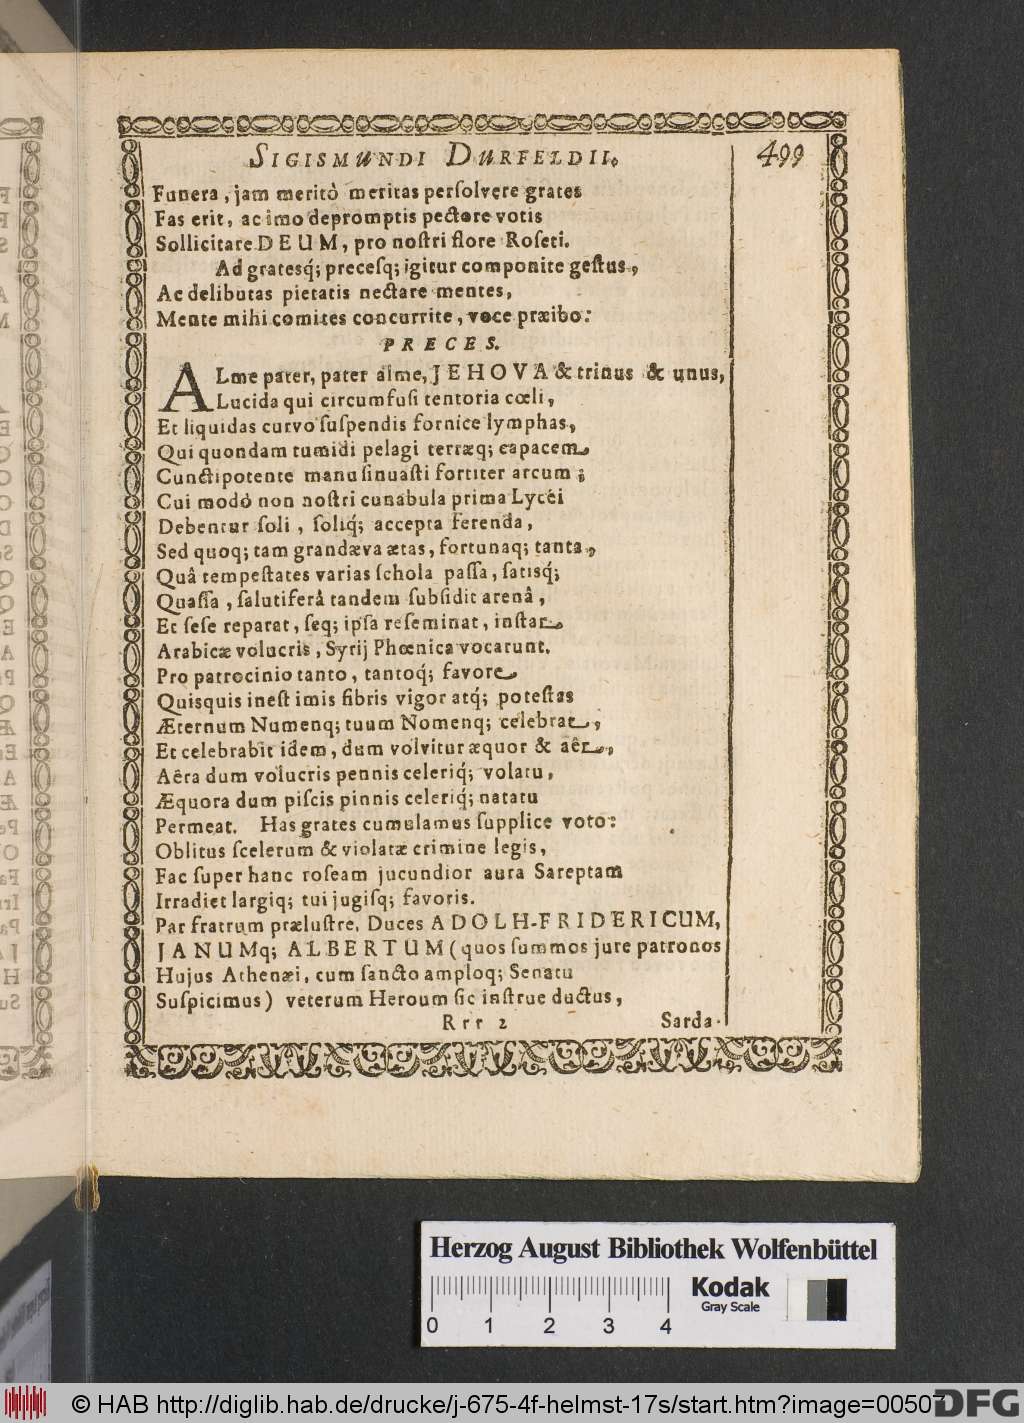 SIGISMUNDI DURFELDII. 499
Funera, jam meritò meritas persolvere grates
Fas erit, ac imo depromptis pectore votis
Sollicitare DEUM, pro nostri flore Roseti.
Ad gratesq́; precesq́; igitur componite gestus,
Ac delibutas pietatis nectare mentes,
Mente mihi comites concurrite, voce præibo:
PRECES.
ALme pater, pater alme, JEHOVA & trinus & unus,
Lucida qui circumfusi tentoria cœli,
Et liquidas curvo suspendis fornice lymphas,
Qui quondam tumidi pelagi terræq; capacem
Cunctipotente manu sinuasti fortiter arcum;
Cui modò non nostri cunabula prima Lycéi
Debentur soli, soliq́; accepta ferenda,
Sed quoq; tam grandæva ætas, fortunaq; tanta,
Quâ tempestates varias schola passa, satisq́;
Quassa, salutiferâ tandem subsidit arenâ,
Et sese reparat, seq; ipsa reseminat, instar
Arabicæ volucris, Syrij Phœnica vocarunt.
Pro patrocinio tanto, tantoq́; favore
Quisquis inest imis fibris vigor atq́; potestas
Æternum Numenq; tuum Nomenq; celebrat,
Et celebrabit idem, dum volvitur æquor & aêr,
Aêra dum volucris pennis celeriq́; volatu,
Æquora dum piscis pinnis celeriq́; natatu
Permeat. Has grates cumulamus supplice voto:
Oblitus scelerum & violatæ crimine legis,
Fac super hanc roseam jucundior aura Sareptam
Irradiet largiq; tui jugisq; favoris.
Par fratrum prælustre, Duces ADOLH-FRIDERICUM,
JANUMq; ALBERTUM (quos summos jure patronos
Hujus Athenæi, cum sancto amploq; Senatu
Suspicimus) veterum Heroum sic instrue ductus,
Rrr 2 Sarda-
Herzog August Bibliothek Wolfenbüttel
Kodak
Gray Scale
0 1 2 3 4
© HAB http://diglib.hab.de/drucke/j-675-4f-helmst-17s/start.htm?image=00507
DFG